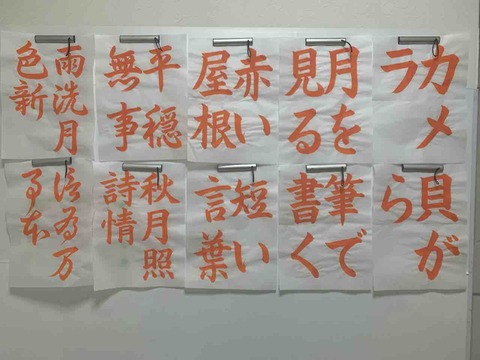 カメ
ラ
月を
見る
赤い
屋根
平穏
無事
雨洗月
色新
貝が
ら
筆で
書く
短い
言葉
秋月照
詩情
信為万
事本